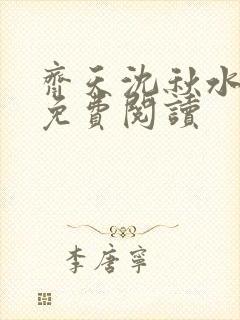 齊天沈秋水
免費閱讀
李唐寧